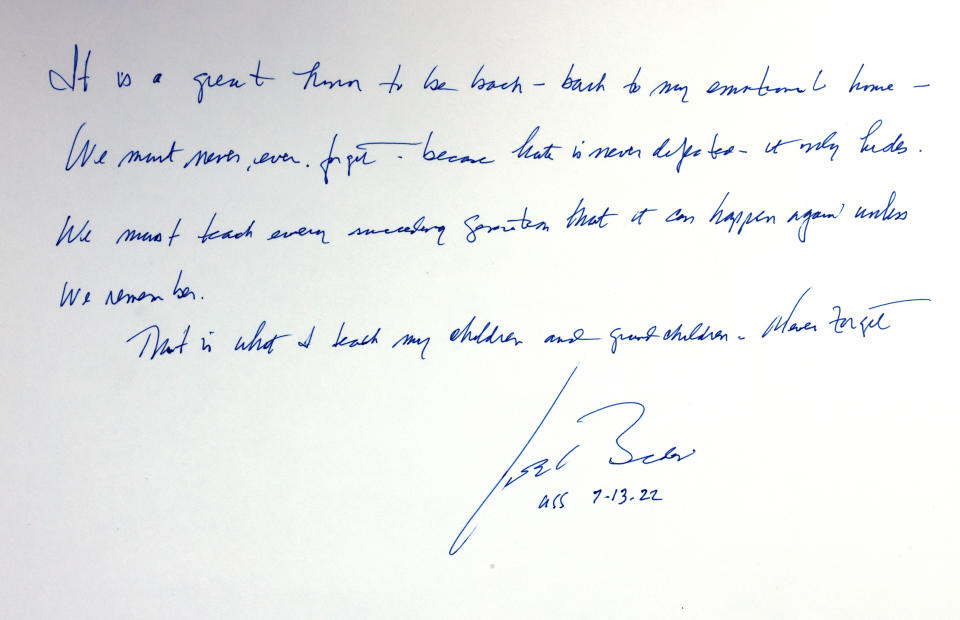 It is a great honor to be back - back to my emotional home -
We must never, ever. forget - because hate is never defeated - it only hides.
We must teach every succeeding generation that it can happen again unless
we remember.
That is what I teach my children and grandchildren. Never Forget
Joe Biden
7-13-22